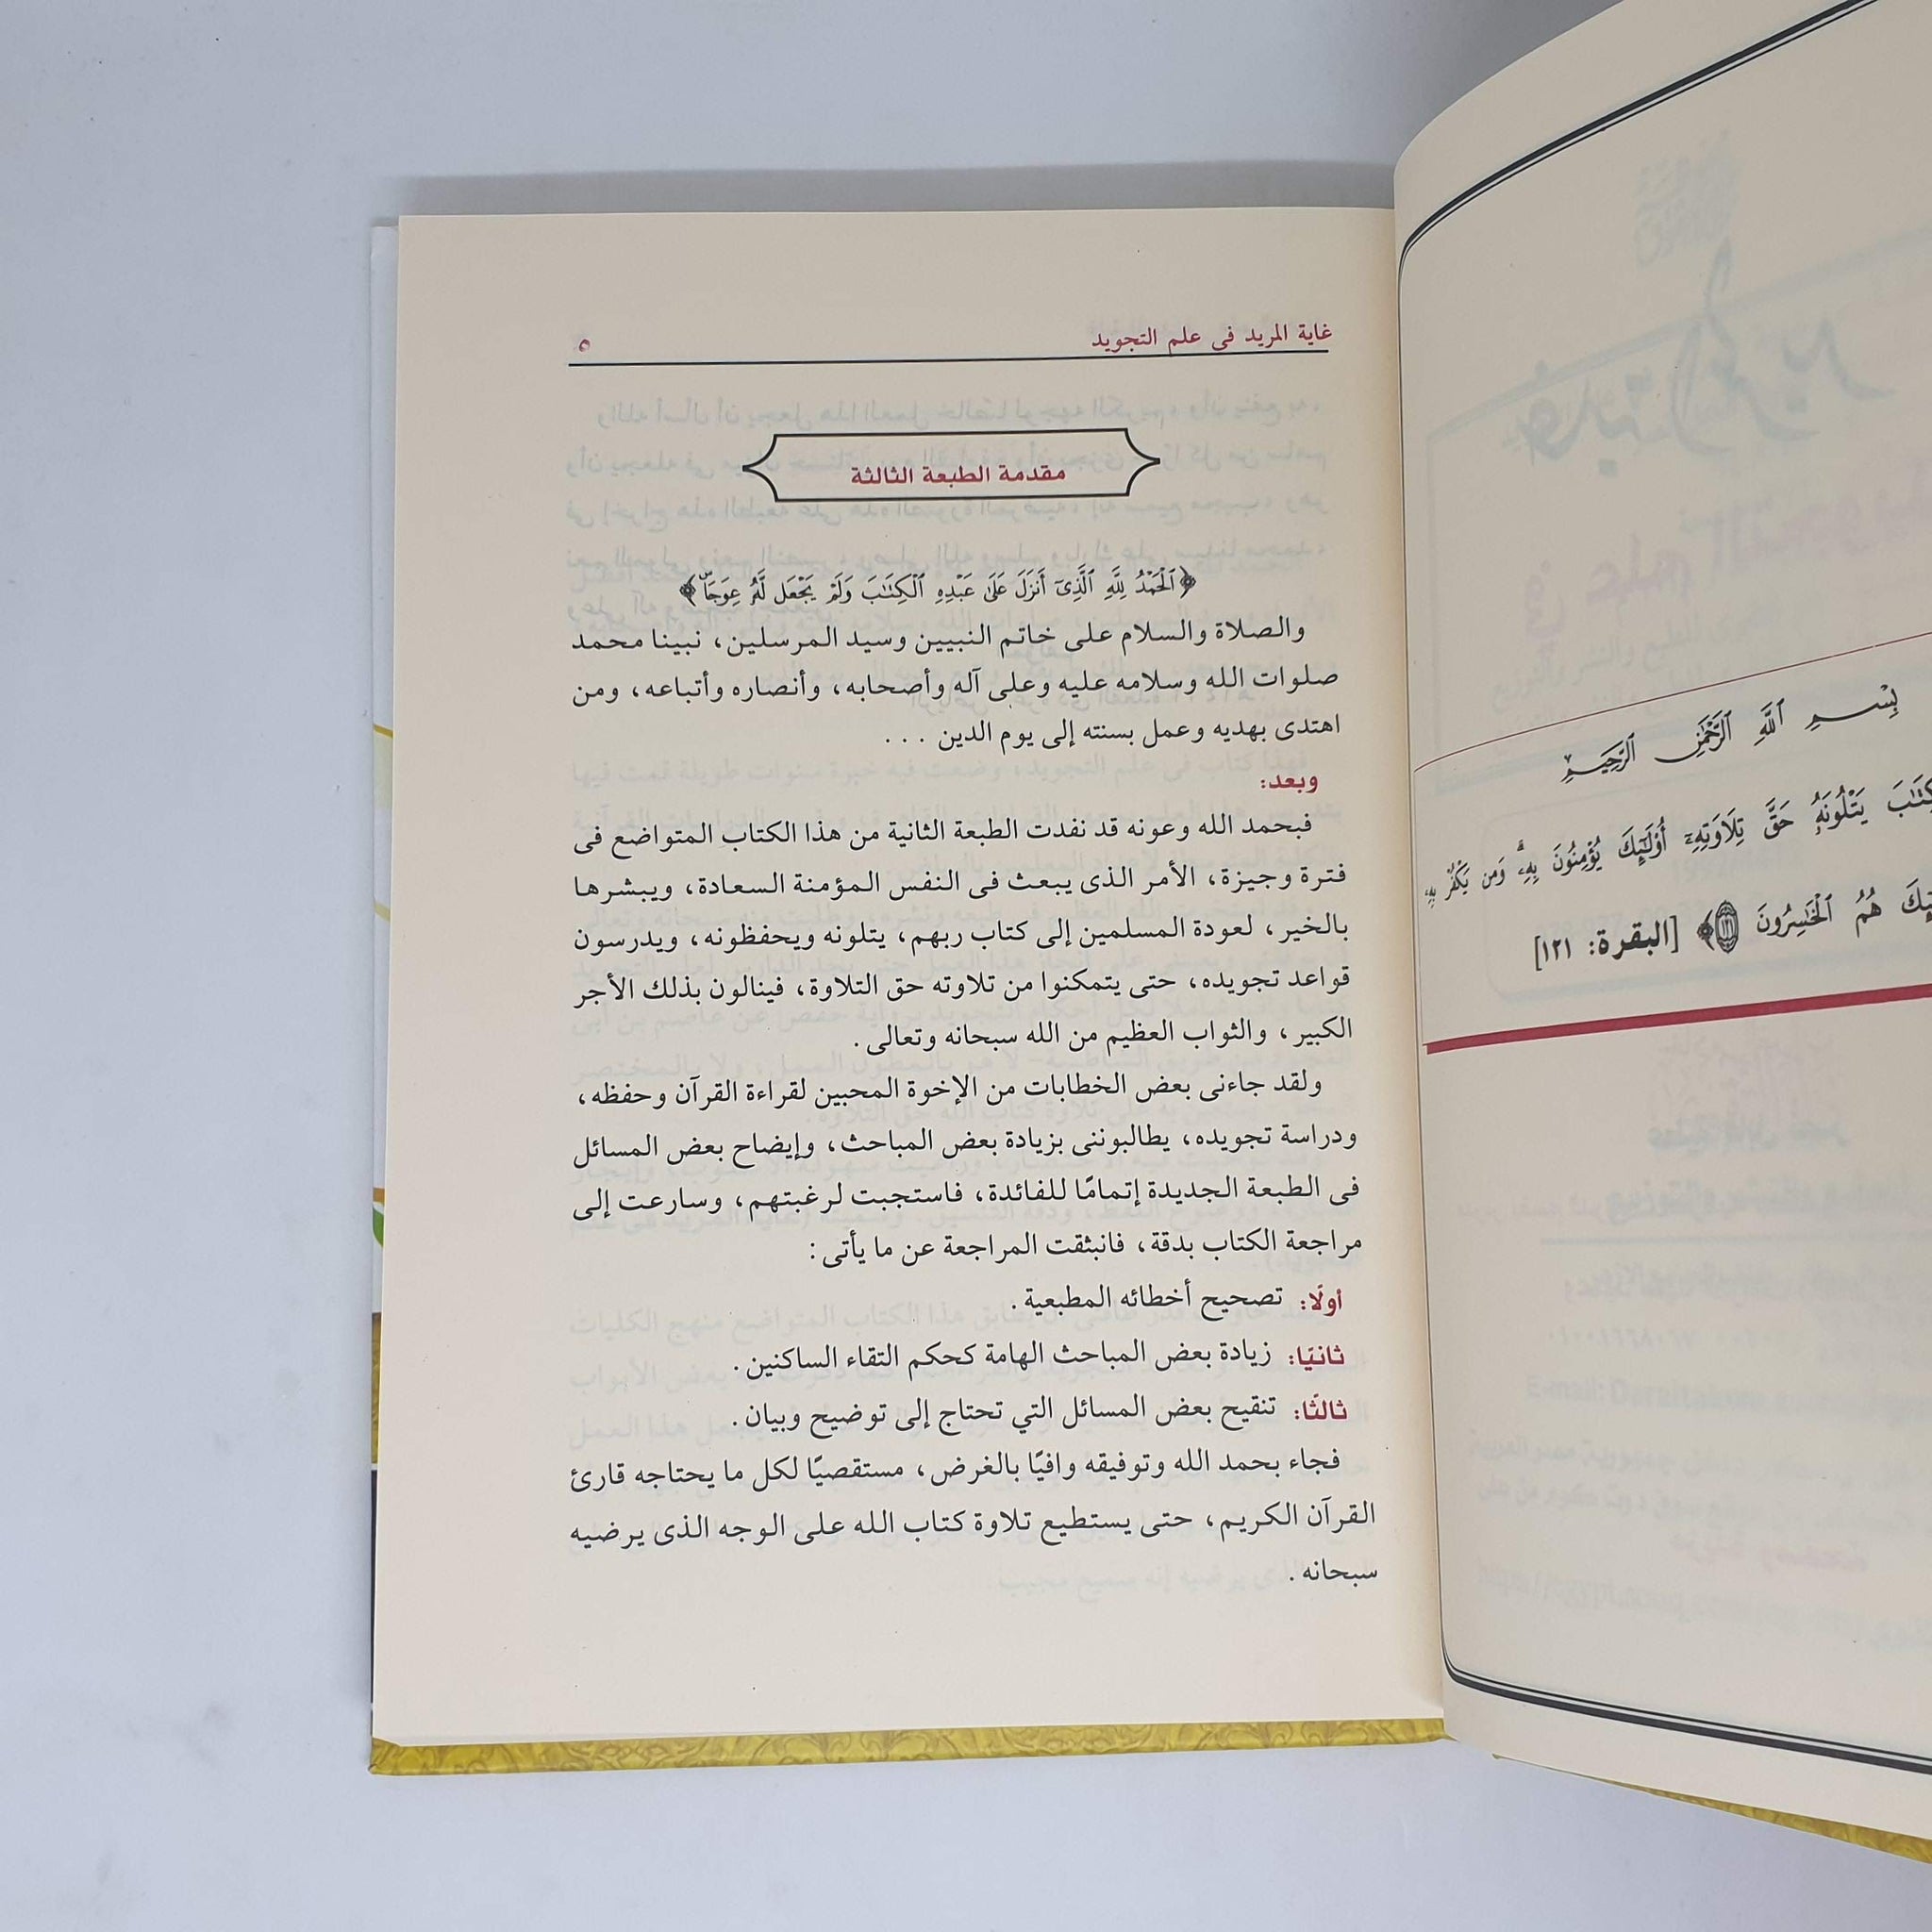 بِسْمِ اللَّهِ الرَّحْمَٰنِ الرَّحِيمِ
يَتْلُونَهُ حَقَّ تِلَاوَتِهِ أُوْلَٰٓئِكَ يُؤْمِنُونَ بِهِ وَمَن يَكْفُرْ بِهِ
هُمُ الْخَاسِرُونَ ﴿١٢١﴾ [البقرة: ١٢١]
غاية المريد فى علم التجويد ٥
مقدمة الطبعة الثالثة
﴿الْحَمْدُ لِلَّهِ الَّذِىٓ أَنزَلَ عَلَىٰ عَبْدِهِ الْكِتَٰبَ وَلَمْ يَجْعَل لَّهُۥ عِوَجَا﴾
والصلاة والسلام على خاتم النبيين وسيد المرسلين، نبينا محمد
صلوات الله وسلامه عليه وعلى آله وأصحابه، وأنصاره وأتباعه، ومن
اهتدى بهديه وعمل بسنته إلى يوم الدين . . .
وبعد:
فبحمد الله وعونه قد نفدت الطبعة الثانية من هذا الكتاب المتواضع فى
فترة وجيزة، الأمر الذى يبعث فى النفس المؤمنة السعادة، ويبشرها
بالخير، لعودة المسلمين إلى كتاب ربهم، يتلونه ويحفظونه، ويدرسون
قواعد تجويده، حتى يتمكنوا من تلاوته حق التلاوة، فينالون بذلك الأجر
الكبير، والثواب العظيم من الله سبحانه وتعالى.
ولقد جاءنى بعض الخطابات من الإخوة المحبين لقراءة القرآن وحفظه،
ودراسة تجويده، يطالبوننى بزيادة بعض المباحث، وإيضاح بعض المسائل
فى الطبعة الجديدة إتمامًا للفائدة، فاستجبت لرغبتهم، وسارعت إلى
مراجعة الكتاب بدقة، فانبثقت المراجعة عن ما يأتى:
أولًا: تصحيح أخطائه المطبعية.
ثانيًا: زيادة بعض المباحث الهامة كحكم التقاء الساكنين.
ثالثًا: تنقيح بعض المسائل التي تحتاج إلى توضيح وبيان.
فجاء بحمد الله وتوفيقه وافيًا بالغرض، مستقصيًا لكل ما يحتاجه قارئ
القرآن الكريم، حتى يستطيع تلاوة كتاب الله على الوجه الذى يرضيه
سبحانه.